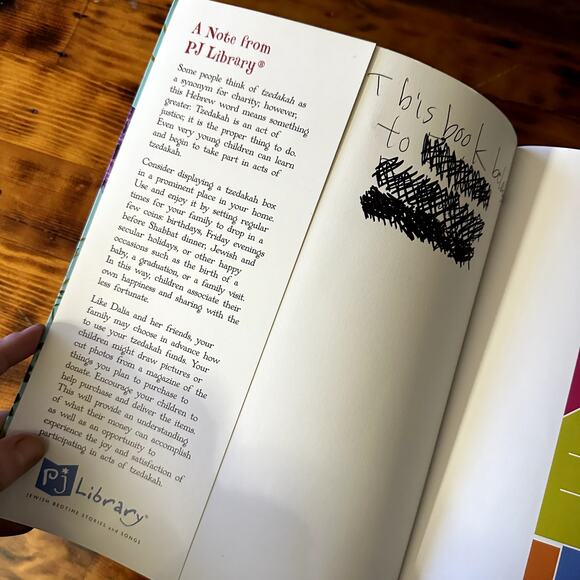 A Note from
PJ Library®
Some people think of tzedakah as
a synonym for charity; however,
this Hebrew word means something
greater. Tzedakah is an act of
justice; it is the proper thing to do.
Even very young children can learn
and begin to take part in acts of
tzedakah.
Consider displaying a tzedakah box
in a prominent place in your home.
Use and enjoy it by setting regular
times for your family to drop in a
few coins: birthdays, Friday evenings
before Shabbat dinner, Jewish and
secular holidays, or other happy
occasions such as the birth of a
baby, a graduation, or a family visit.
In this way, children associate their
own happiness and sharing with the
less fortunate.
Like Dalia and her friends, your
family may choose in advance how
to use your tzedakah funds. Your
children might draw pictures or
cut photos from a magazine of the
things you plan to purchase to
donate. Encourage your children to
help purchase and deliver the items.
This will provide an understanding
of what their money can accomplish
as well as an opportunity to
experience the joy and satisfaction of
participating in acts of tzedakah.
PJ Library®
JEWISH BEDTIME STORIES and SONGS
This book
to